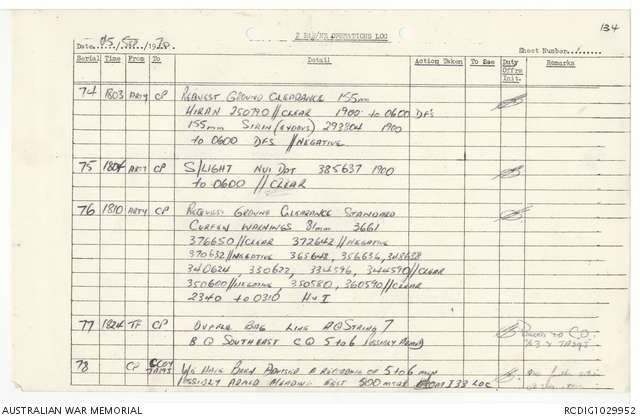 134
2 RAR/NZ OPERATIONS LOG
Date 05 SEP 1970
Sheet Number
Serial Time From To Detail Action Taken To See Duty Offrs Init. Remarks
74 1803 ARTY CP REQUEST GROUND CLEARANCE 155mm
HIRAN 250790 // CLEAR 1900 to 0600 DFS
155mm 293804 1900
to 0600 DFS // NEGATIVE
75 1804 ARTY CP S/LIGHT NUI DAT 385637 1900
to 0600 // CLEAR
76 1810 ARTY CP REQUEST GROUND CLEARANCE STANDARD
CURFEW WARNINGS 81mm 3661
376650 // CLEAR 372642 // NEGATIVE
370632 // NEGATIVE 365642, 356636, 348638
340624, 330622, 334596, 344590 // CLEAR
350600 // NEGATIVE, 350580, 360590 // CLEAR
2340 to 0310 H & I
77 1824 TF CP DUFFLE BAG LINE STRING 7
B Q SOUTHEAST C Q 5 to 6
78 CP WE HAVE BEEN ADVISED 5 to 6 men
POSSIBLY ARMED HEADING EAST 500 mtrs FROM I 33 LOC
AUSTRALIAN WAR MEMORIAL
RCDIG1029952